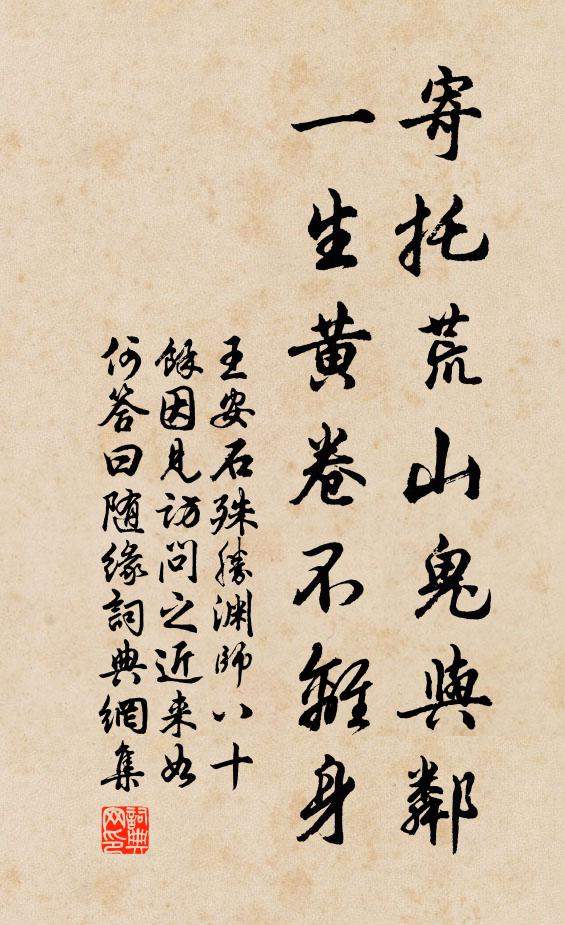 寄托荒山鬼與鄰
一生黃卷不離身
王安石殊勝淵師八十
餘因見訪問之近来如
何答曰随緣詞典網集
詞典
网印